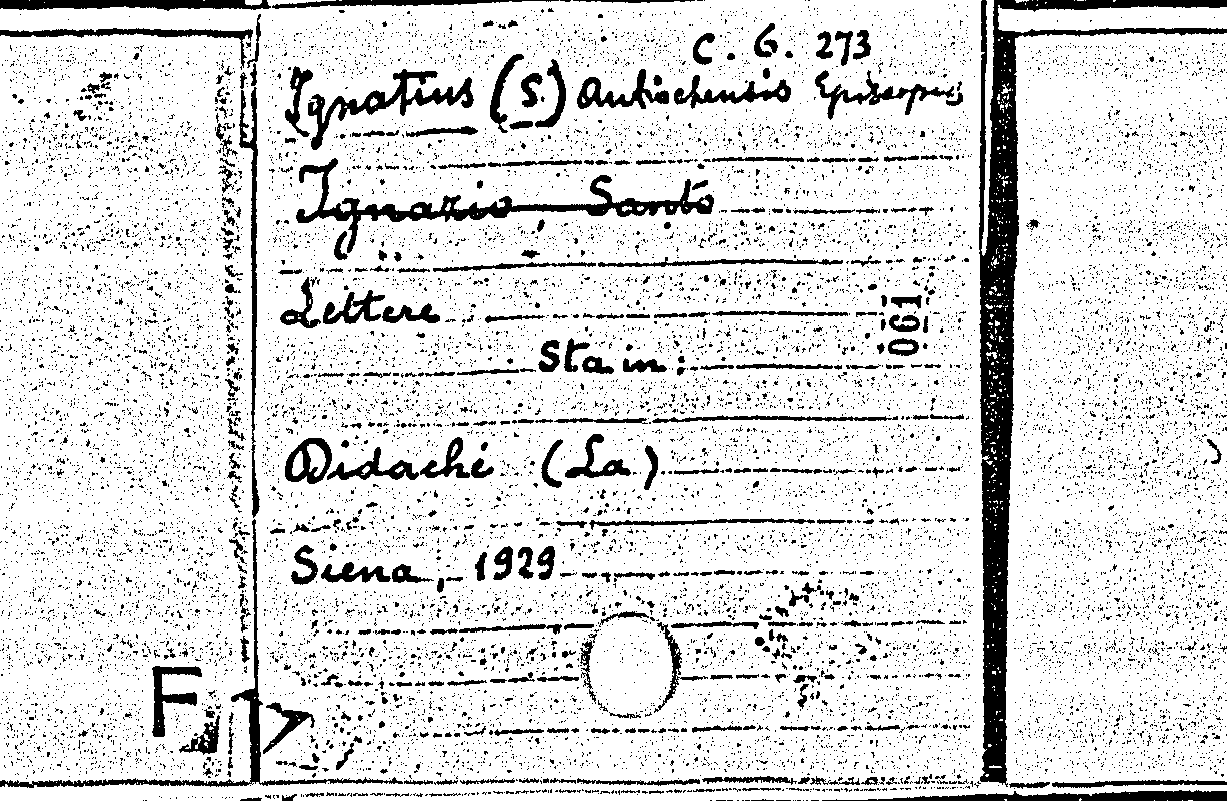 C. G. 273
Ignatius (S.) Antiochensis Episcopus
Ignazio, Santo
Lettere
061
Sta in:
Didachè (La)
Siena, 1929
F